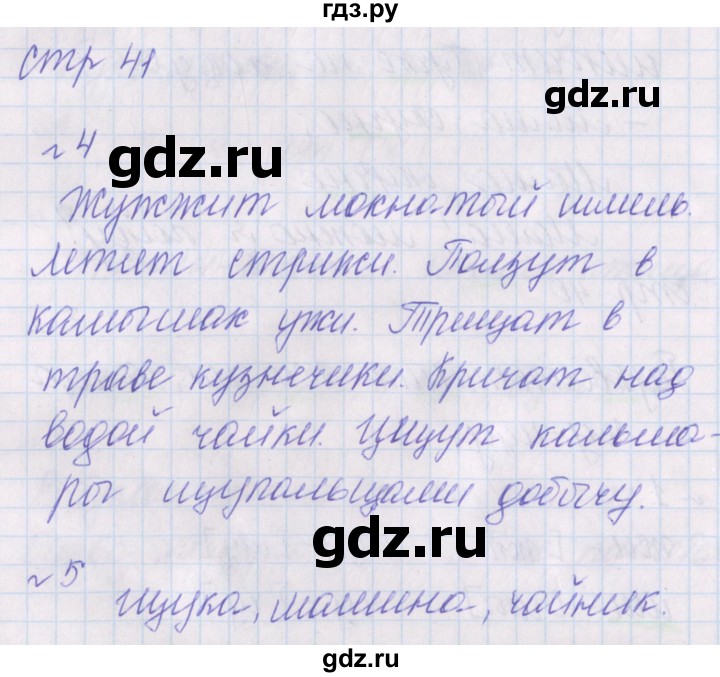 гдз.ру
стр 41
gdz.ru
№4
gdz.ru
Жужжит мохнатый шмель.
Летят стрижи. Ползут в
камышах ужи. Трещат в
траве кузнечики. Кричат над
водой чайки. Ищут кальма-
ры щупальцами добычу.
gdz.ru
№5
щука, машина, чайник.
gdz.ru